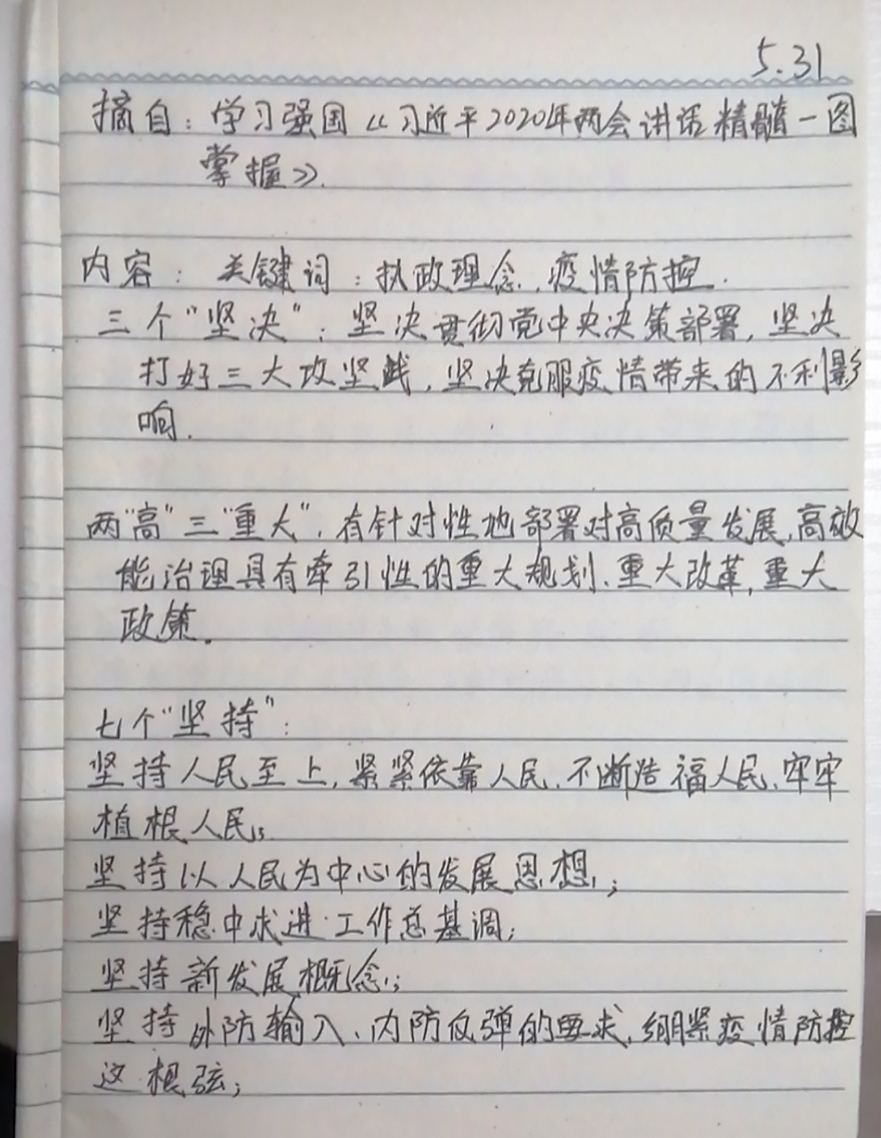 5.31
摘自：学习强国《习近平2020年两会讲话精髓一图
掌握》.
内容：关键词：执政理念、疫情防控.
三个"坚决"：坚决贯彻党中央决策部署，坚决
打好三大攻坚战，坚决克服疫情带来的不利影
响.
两"高"三"重大"，有针对性地部署对高质量发展、高效
能治理具有牵引性的重大规划、重大改革、重大
政策。
七个"坚持"：
坚持人民至上，紧紧依靠人民、不断造福人民、牢牢
植根人民；
坚持以人民为中心的发展思想；
坚持稳中求进工作总基调；
坚持新发展概念；
坚持外防输入、内防反弹的要求，绷紧疫情防控
这根弦；